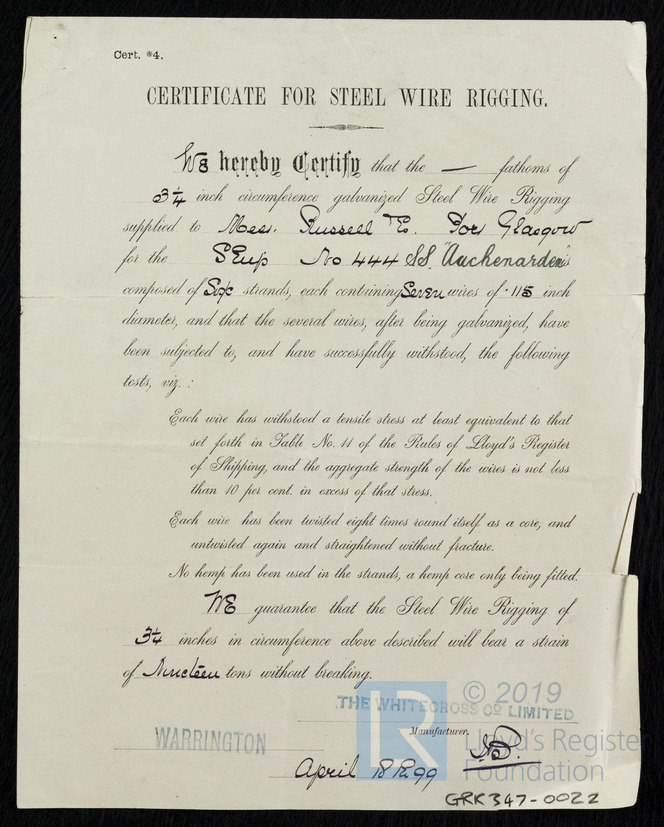 Cert. *4.
CERTIFICATE FOR STEEL WIRE RIGGING.
We hereby Certify that the — fathoms of
3¼ inch circumference galvanized Steel Wire Rigging
supplied to Mess. Russell & Co. Port Glasgow
for the Ship No 444 SS. "Auchenarden" is
composed of Six strands, each containing Seven wires of .115 inch
diameter, and that the several wires, after being galvanized, have
been subjected to, and have successfully withstood, the following
tests, viz. :
Each wire has withstood a tensile stress at least equivalent to that
set forth in Table No. 11 of the Rules of Lloyd's Register
of Shipping, and the aggregate strength of the wires is not less
than 10 per cent. in excess of that stress.
Each wire has been twisted eight times round itself as a core, and
untwisted again and straightened without fracture.
No hemp has been used in the strands, a hemp core only being fitted.
WE guarantee that the Steel Wire Rigging of
3¼ inches in circumference above described will bear a strain
of Nineteen tons without breaking.
© 2019
THE WHITECROSS CO LIMITED
Manufacturer.
WARRINGTON
LR
Lloyd's Register
Foundation
April 18 1899
GRK347-0022